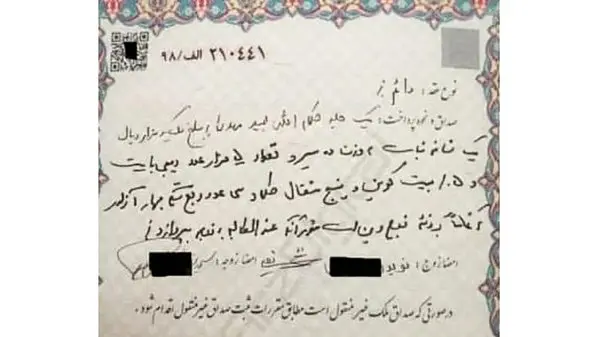 ۲۱۰۴۴۱ الف/۹۸
نوع عقد: دائم
صداق و نحوه پرداخت: یک جلد کلام الله مجید هزار ریال
یک شاخه نبات به وزن ده سیر و تعداد ۵ هزار عدد دیجی بایت
و ۰/۵ بیت کوین و پنج مثقال طلا و سی عدد ربع سکه بهار آزادی
بر ذمه زوج دین است عندالمطالبه به زوجه بپردازد
امضا زوج: نوید امضا زوجه:
در صورتی که صداق ملک غیر منقول است مطابق مقررات ثبت صداق غیر منقول اقدام شود.